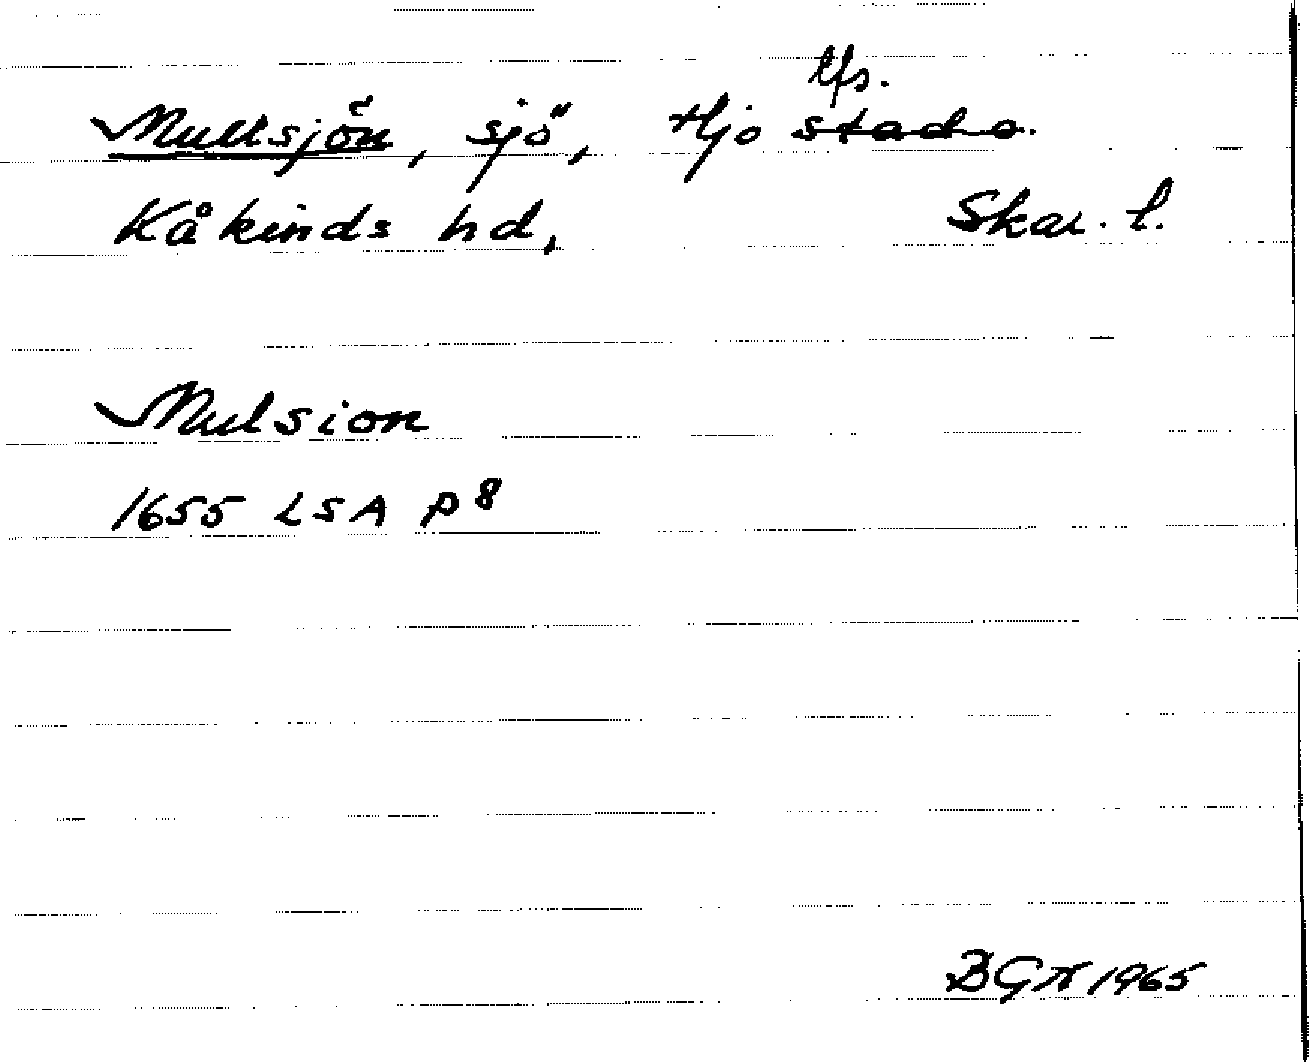 lfs.
Mullsjön, sjö, Hjo stads.
Kåkinds hd, Skar. l.
Mulsion
1655 LSA P8
BGN 1965